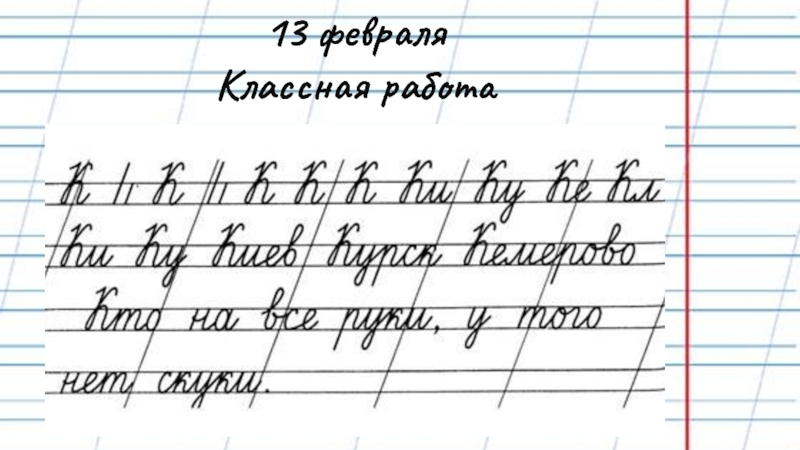 13 февраля
Классная работа
К К К К К Ки Ку Ке Кл
Ки Ку Киев Курск Кемерово
Кто на все руки, у того
нет скуки.